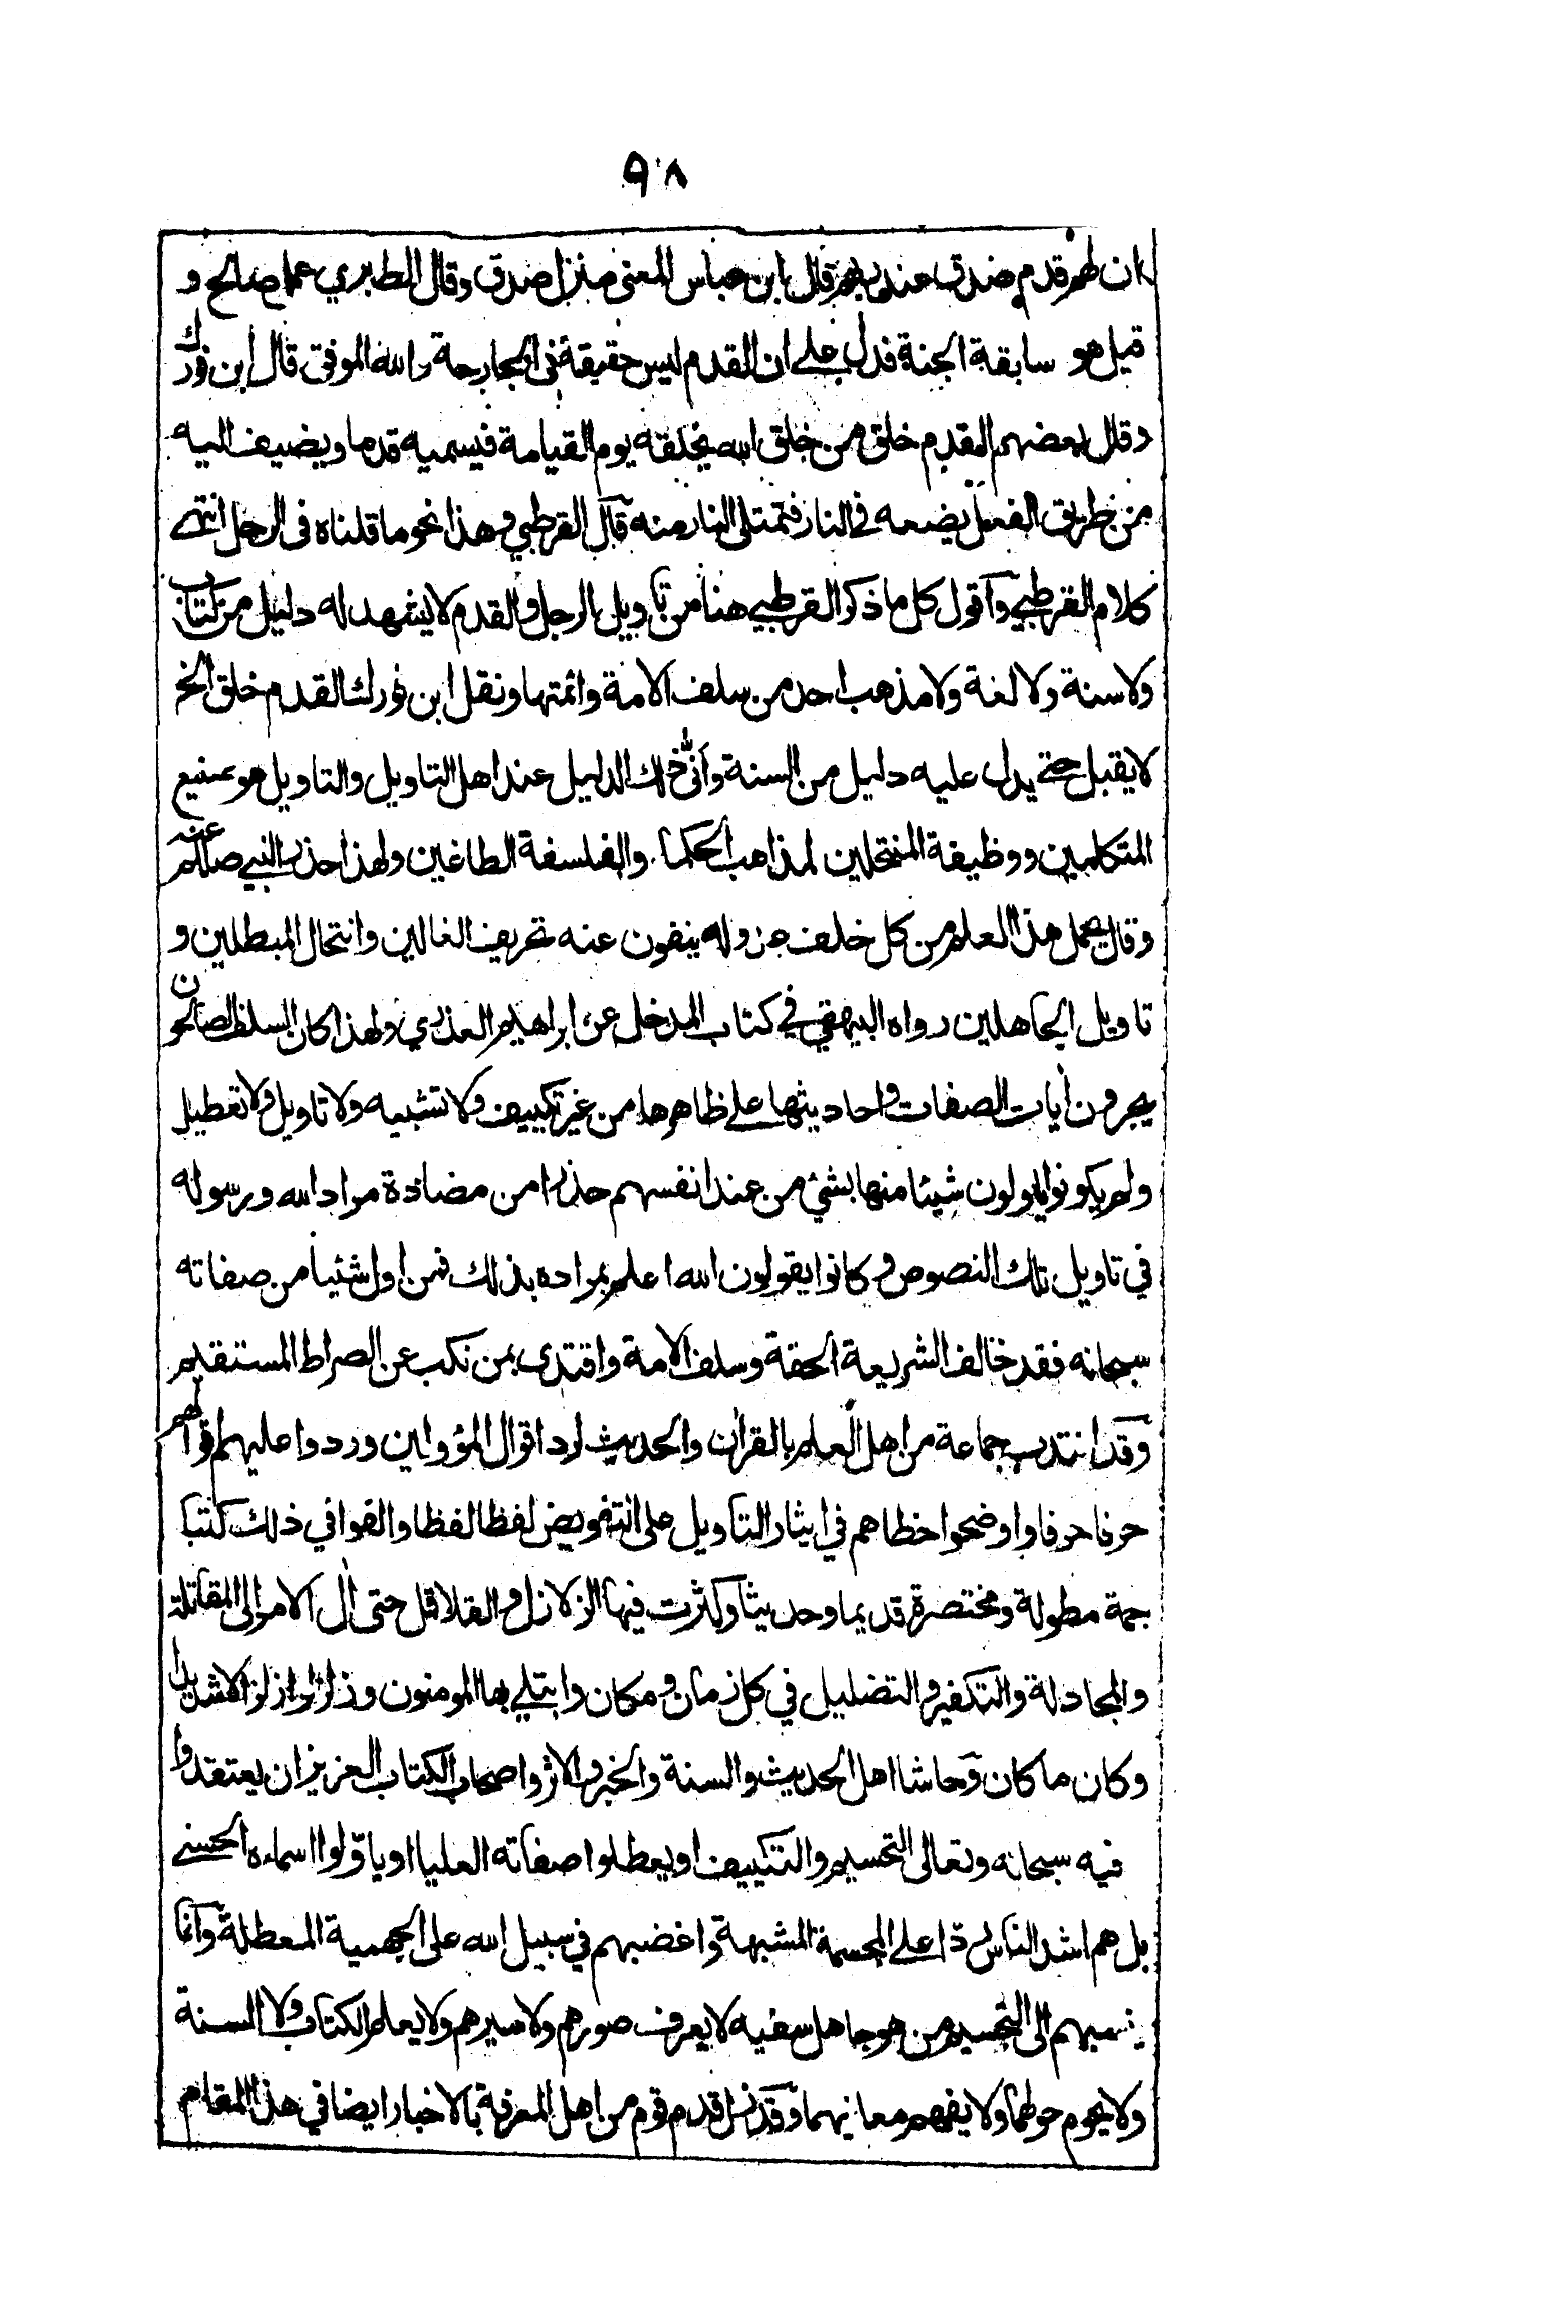 ٩٨
ان لهم قدم صدق عند ربهم قال ابن عباس المعنى منزل صدق وقال الطبري عمل صالح و
قيل هو سابقة الجنة فدل على ان القدم ليس حقيقة في الجارحة والله الموفق قال ابن فورك
وقال بعضهم القدم خلق من خلق الله يخلقه يوم القيامة فيسميه قدما ويضيف اليه
من طريق الفعل يضعه في النار فتمتلى النار منه قال القرطبي وهذا نحو ما قلناه في الرجل انتهى
كلام القرطبي وأقول كل ما ذكر القرطبي هنا من تأويل الرجل والقدم لا يشهد له دليل من كتاب
ولا سنة ولا لغة ولا مذهب احد من سلف الامة وائمتها ونقل ابن فورك القدم خلق الخ
لا يقبل حتى يدل عليه دليل من السنة وأنى ذلك الدليل عند اهل التاويل والتاويل هو صنيع
المتكلمين ووظيفة المنتحلين لمذاهب الحكماء والفلسفة الطاغين ولهذا حذر النبي صللم عنه
وقال يحمل هذا العلم من كل خلف عدوله ينفون عنه تحريف الغالين وانتحال المبطلين و
تاويل الجاهلين رواه البيهقي في كتاب المدخل عن ابراهيم العذري ولهذا كان السلف الصالحون
يجرون أيات الصفات واحاديثها على ظاهرها من غير تكييف ولا تشبيه ولا تاويل ولا تعطيل
ولم يكونوا يأولون شيئا منها بشئ من عند انفسهم حذرا من مضادة مراد الله ورسوله
في تاويل تلك النصوص وكانوا يقولون الله اعلم بمراده بذلك فمن اول شئيا من صفاته
سبحانه فقد خالف الشريعة الحقة وسلف الامة واقتدى بمن نكب عن الصراط المستقيم
وقد انتدب جماعة من اهل العلم بالقران والحديث لرد اقوال المؤولين وردوا عليهم اقوالهم
حرفا حرفا واوضحوا خطاهم في ايثار التأويل على التفويض لفظا لفظا والفوا في ذلك كتبا
جمة مطولة ومختصرة قديما وحديثا وكثرت فيها الزلازل والقلاقل حتى أل الامر الى المقاتلة
والمجادلة والتكفير والتضليل في كل زمان ومكان وابتلي بها المومنون وزلزلوا زلزالا شديدا
وكان ما كان وحاشا اهل الحديث والسنة والخبر والاثر واصحاب الكتاب العزيز ان يعتقدوا
فيه سبحانه وتعالى التجسيم والتكييف او يعطلوا صفاته العليا او يأولوا اسماءه الحسنى
بل هم اشد الناس ردا على المجسمة المشبهة واغضبهم في سبيل الله على الجهمية المعطلة وانما
ينسبهم الى التجسيم من هو جاهل سفيه لا يعرف صورهم ولا سيرهم ولا يعلم الكتاب ولا السنة
ولا يحوم حولهما ولا يفهم معانيهما وقد زل قدم قوم من اهل المعرفة بالاخبار ايضا في هذا المقام